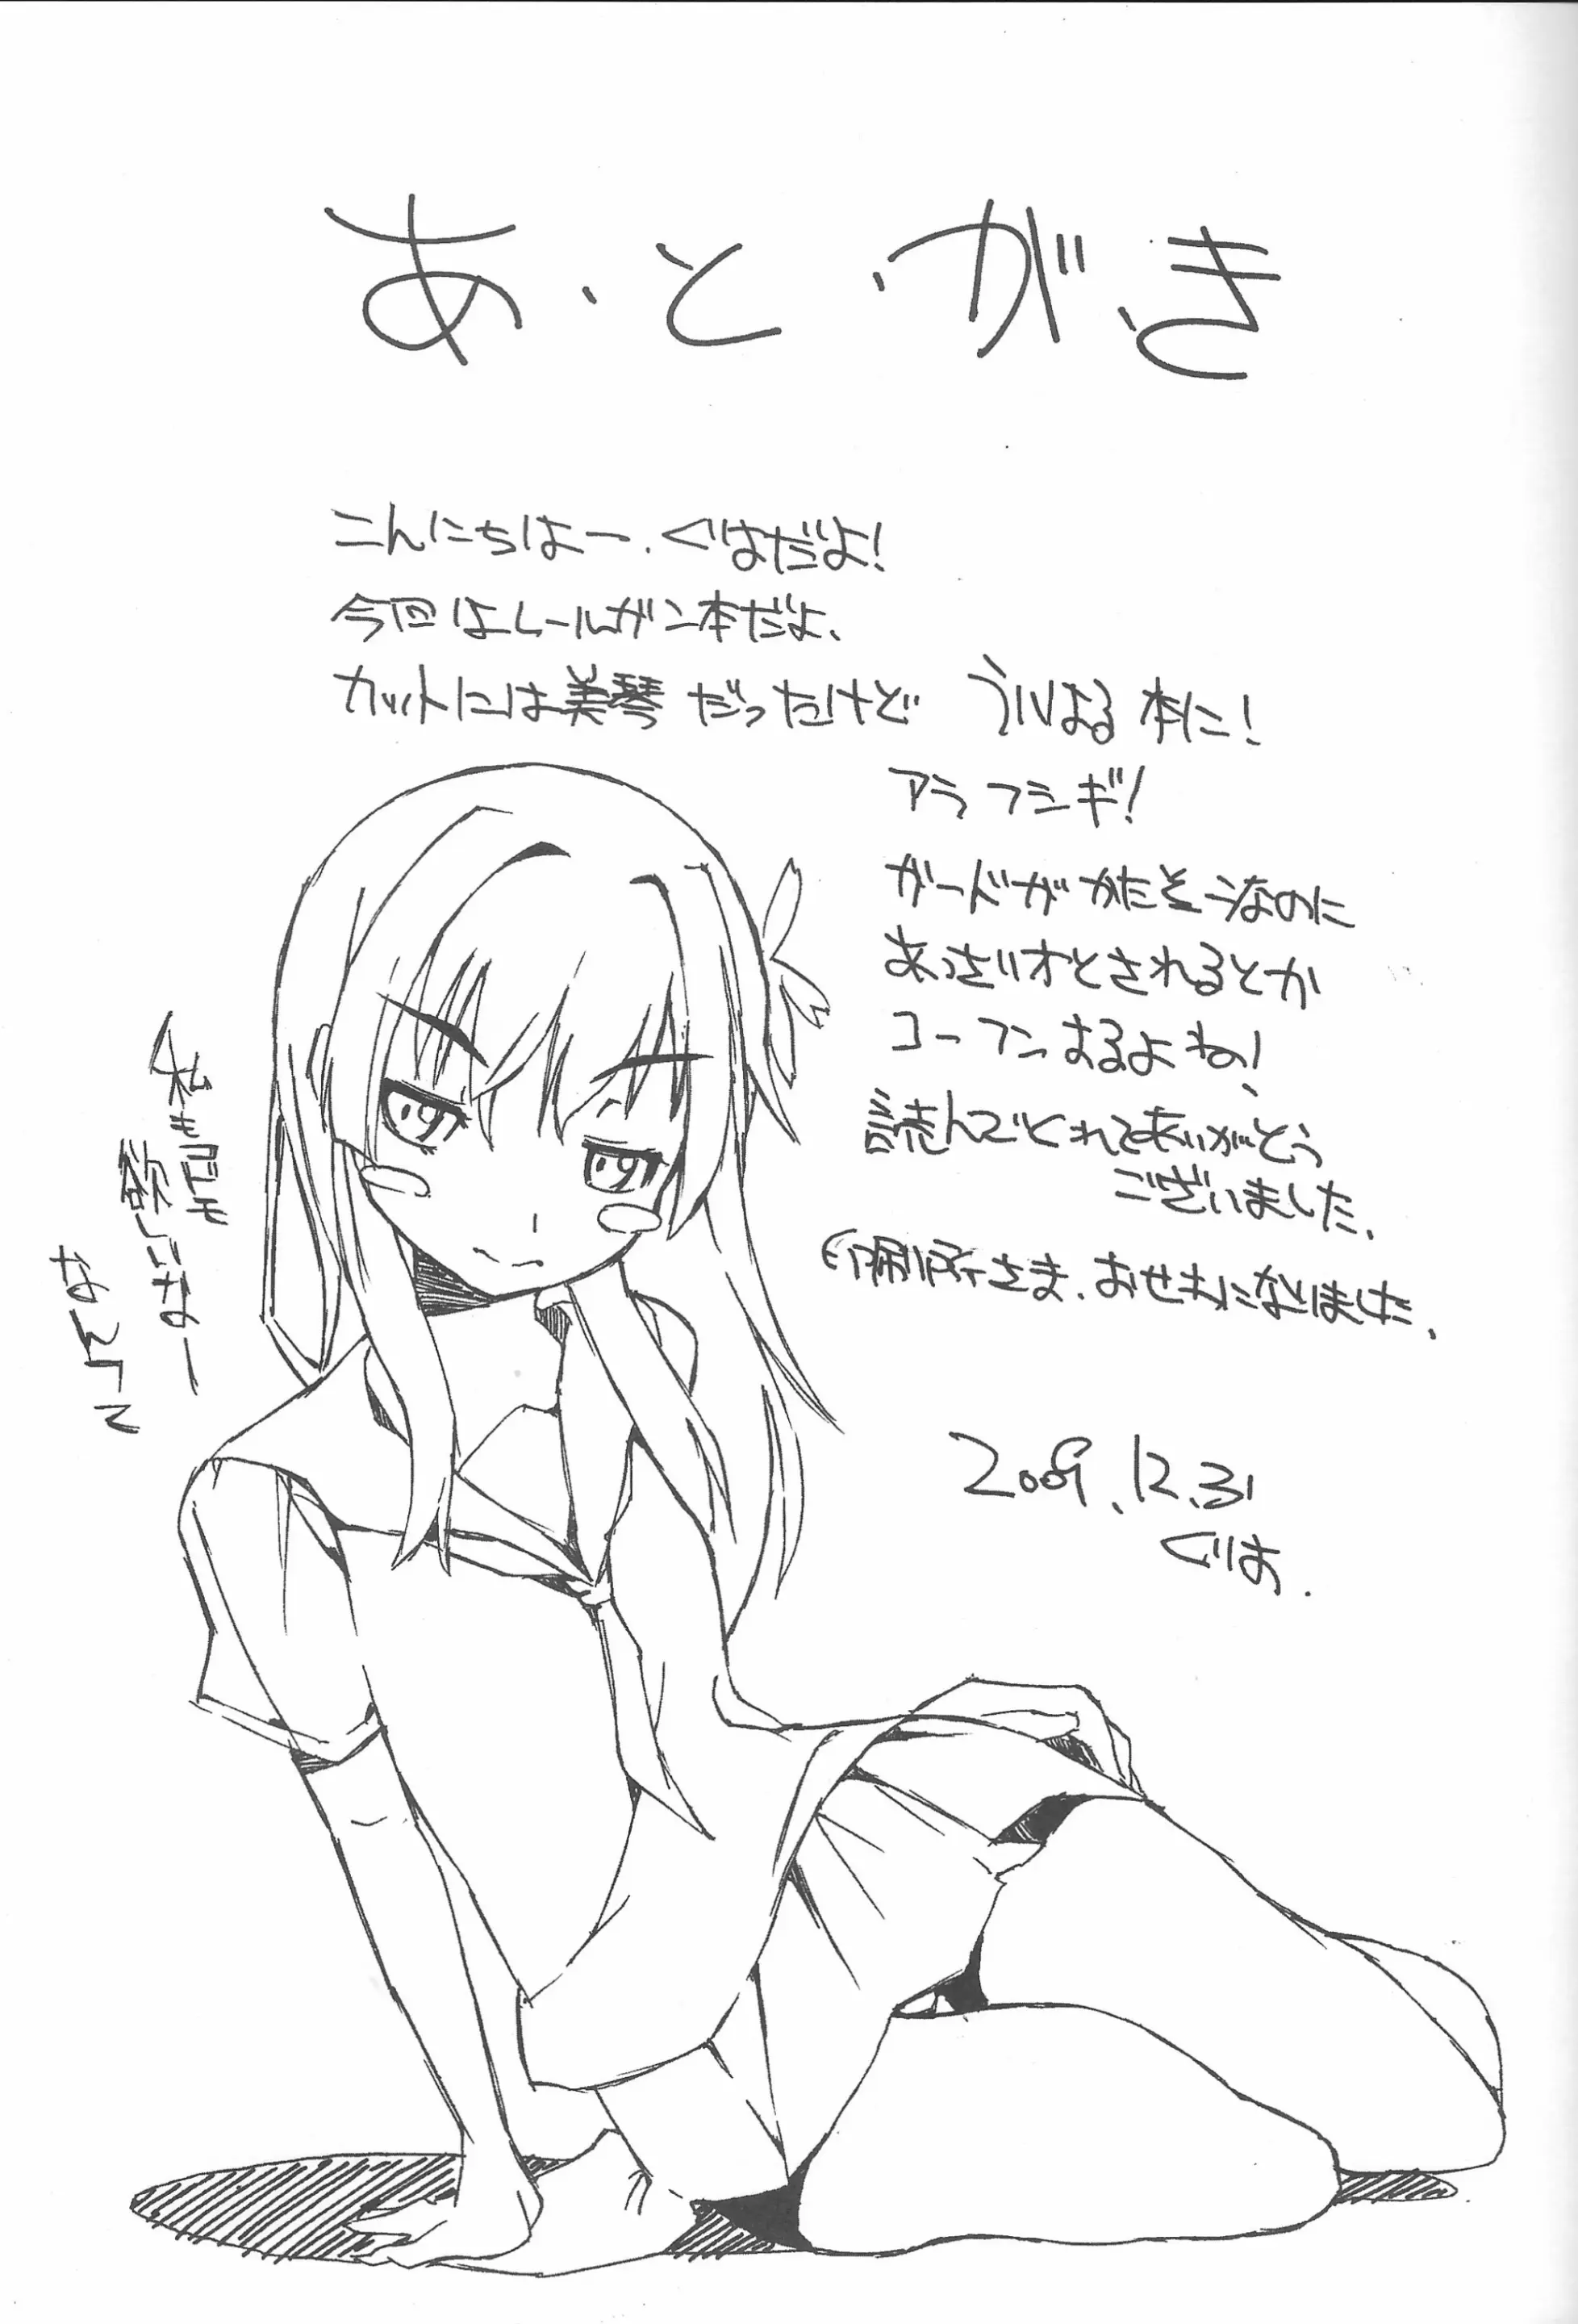 あ・と・がき
こんにちはー、ぐりはだよ!
今回はレールガン本だよ、
カットには美琴だったけど ういはる本に!
アラフシギ!
ガードがかたそーなのに
あっさりオとされるとか
コーフンするよね!
読んでくれてありがとう
ございました、
印刷所さま、おせわになりました、
私もコピモ
欲しいなー
なんてこ
2009.12.31